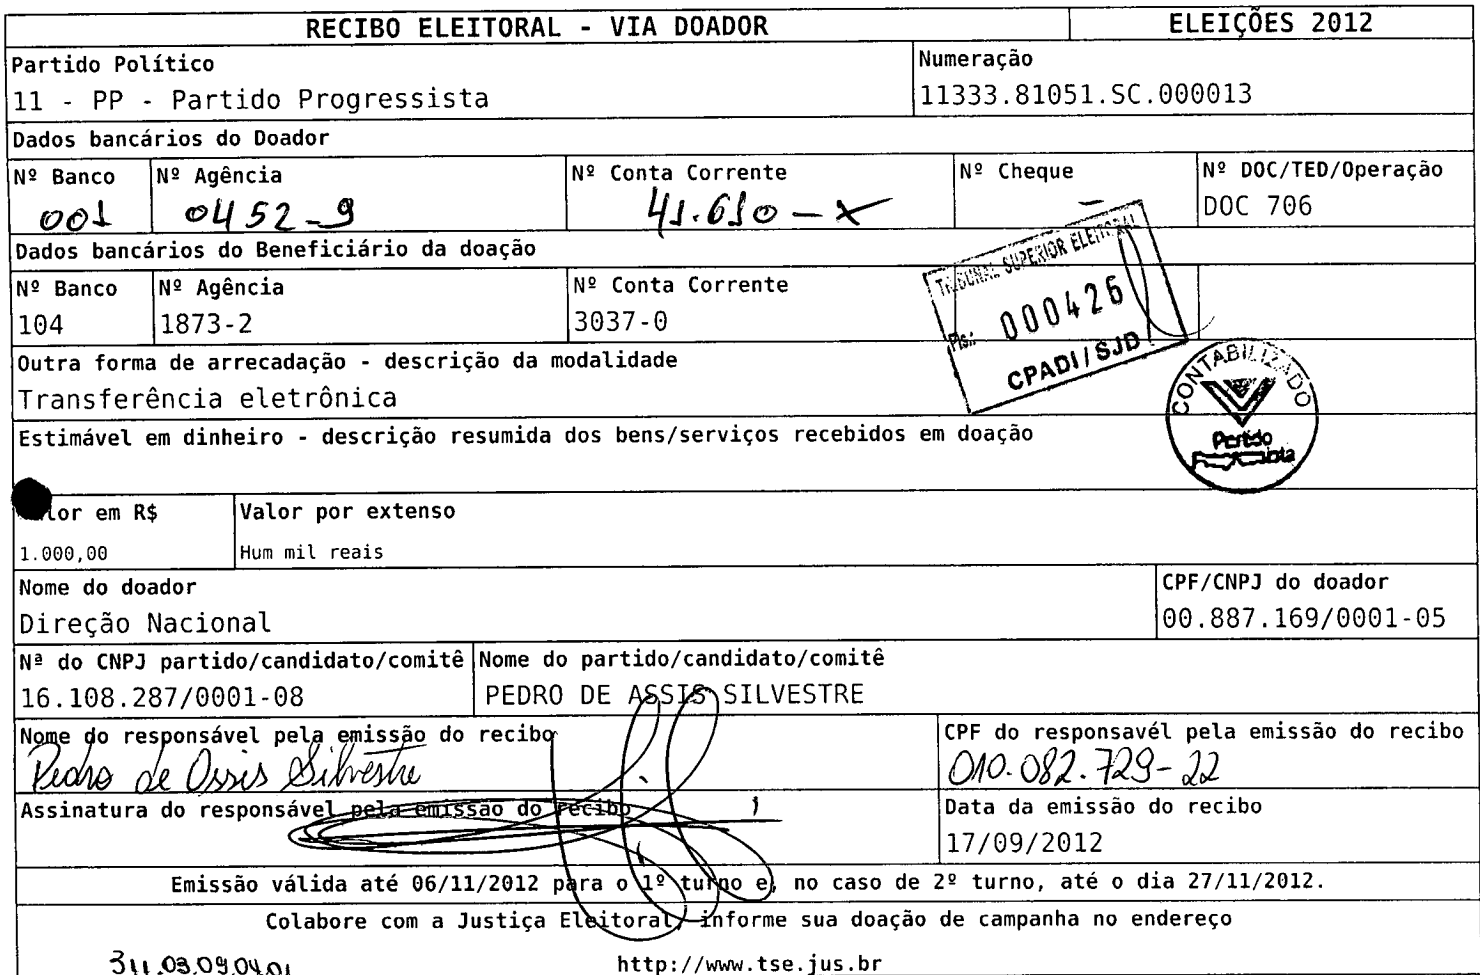 RECIBO ELEITORAL - VIA DOADOR ELEIÇÕES 2012
Partido Político Numeração
11 - PP - Partido Progressista 11333.81051.SC.000013
Dados bancários do Doador
Nº Banco Nº Agência Nº Conta Corrente Nº Cheque Nº DOC/TED/Operação
001 0452-9 41.610-X - DOC 706
Dados bancários do Beneficiário da doação
TRIBUNAL SUPERIOR ELEITORAL
Nº Banco Nº Agência Nº Conta Corrente
104 1873-2 3037-0
Fls.: 000426
CPADI/SJD
Outra forma de arrecadação - descrição da modalidade
Transferência eletrônica
CONTABILIZADO
Partido
Estimável em dinheiro - descrição resumida dos bens/serviços recebidos em doação
Valor em R$ Valor por extenso
1.000,00 Hum mil reais
Nome do doador CPF/CNPJ do doador
Direção Nacional 00.887.169/0001-05
Nª do CNPJ partido/candidato/comitê Nome do partido/candidato/comitê
16.108.287/0001-08 PEDRO DE ASSIS SILVESTRE
Nome do responsável pela emissão do recibo CPF do responsavél pela emissão do recibo
Pedro de Assis Silvestre 010.082.729-22
Assinatura do responsável pela emissão do recibo Data da emissão do recibo
17/09/2012
Emissão válida até 06/11/2012 para o 1º turno e, no caso de 2º turno, até o dia 27/11/2012.
Colabore com a Justiça Eleitoral, informe sua doação de campanha no endereço
http://www.tse.jus.br